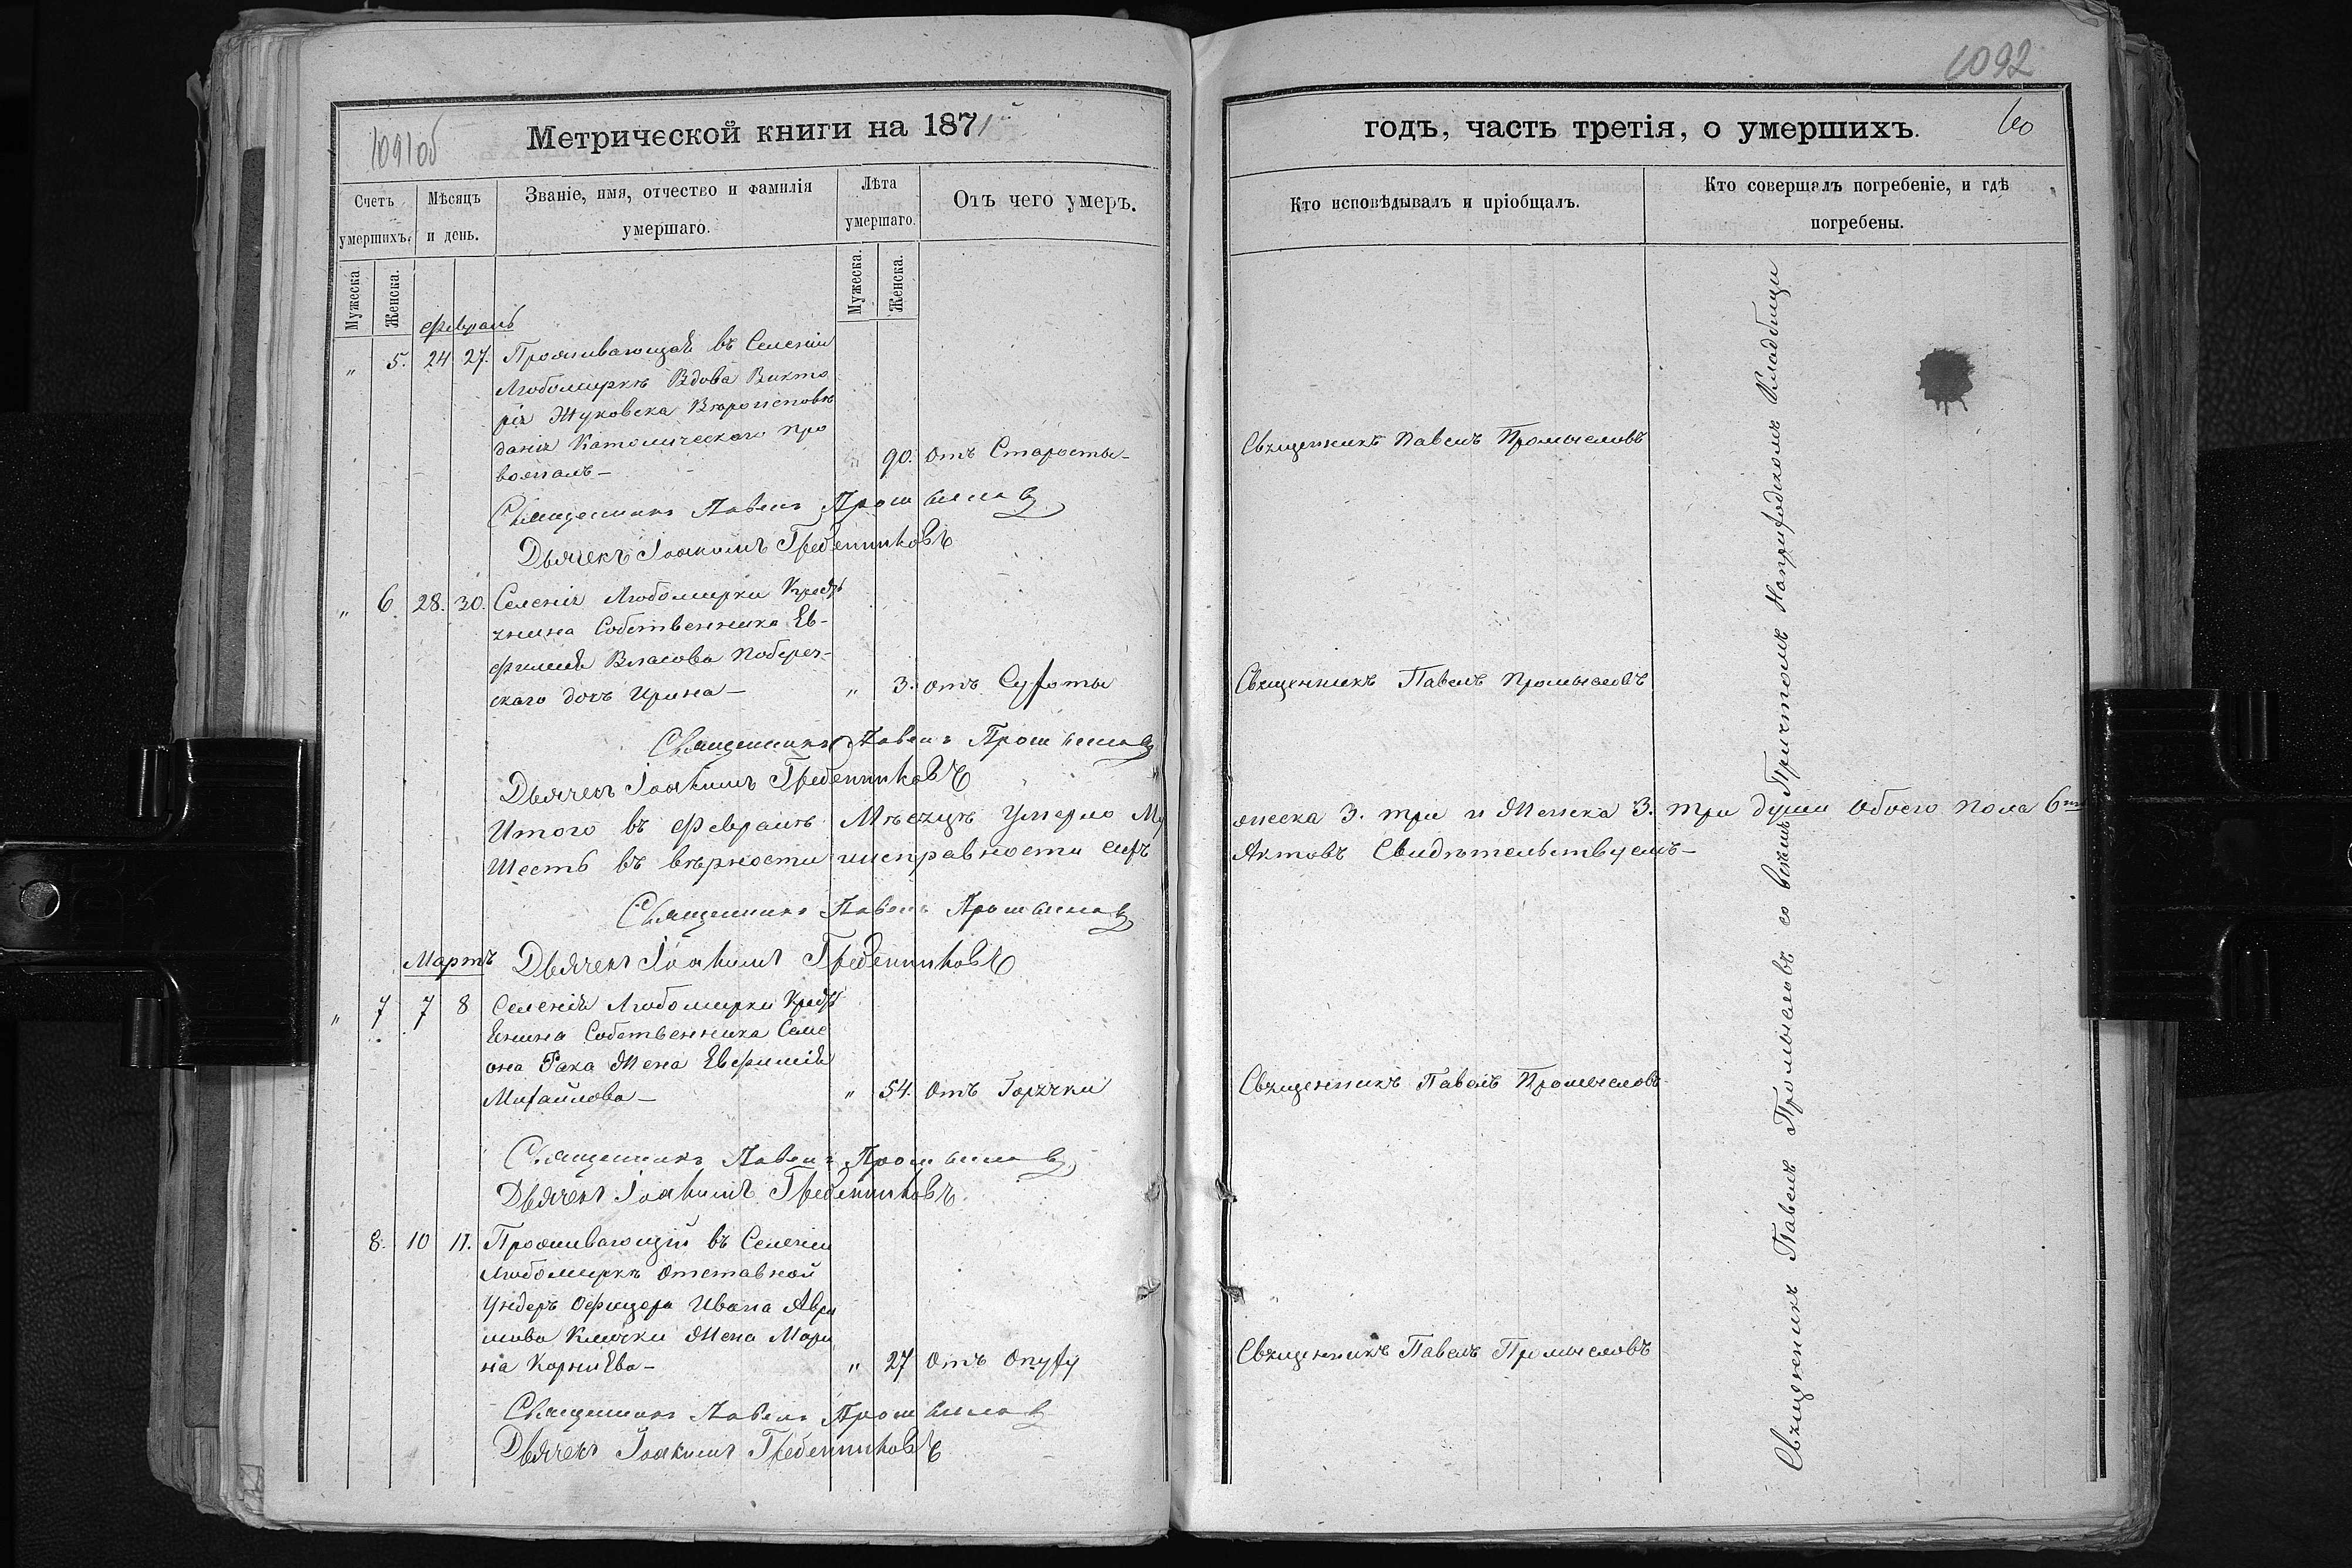 1091об
Метрической книги на 1871й
Счетъ умершихъ.
Мѣсяцъ и день.
Званіе, имя, отчество и фамилія умершаго.
Лѣта умершаго.
Отъ чего умеръ.
Мужеска
Женска.
Мужеска.
Женска.
Февраль
„ 5. 24 27. Проживающая въ Селеніи
Любомиркѣ Вдова Викто
рія Жуковска Вѣроисповѣ
данія Католическаго про
„ 90. отъ Старости-
Священникъ Павелъ Промысловъ
Дьячекъ Іоакимъ Гребенниковъ
„ 6. 28. 30. Селенія Любомирки
Собственника Ев-
фимія Власова Поберез-
скаго дочь Ирина- „ 3. отъ Сухоты
Священникъ Павелъ Промысловъ
Дьячекъ Іоакимъ Гребенниковъ
Итого въ Февралѣ Мѣсяцѣ Умерло Му
Шесть въ вѣрности и исправности сихъ
Священникъ Павелъ Промысловъ
Дьячекъ Іоакимъ Гребенниковъ
Мартъ
„ 7 7 8 Селенія Любомирки Кресть
Собственника Семе
она Рака Жена Евфимія
Михайлова- „ 54. отъ Горячки
Священникъ Павелъ Промысловъ
Дьячекъ Іоакимъ Гребенниковъ
8. 10 11. Проживающій въ Селеніи
Любомиркѣ Отставной
Ундеръ Офицера Ивана
Жена Мари
на Корніева- „ 27 отъ Опуху
Священникъ Павелъ Промысловъ
Дьячекъ Іоакимъ Гребенниковъ
1092
годъ, часть третія, о умершихъ.
60
Кто исповѣдывалъ и пріобщалъ.
Кто совершалъ погребеніе, и гдѣ погребены.
Священникъ Павелъ Промысловъ
Священникъ Павелъ Промысловъ
жеска 3. три и Женска 3. три души обоего пола 6ть
Актовъ Свидѣтельствуемъ-
Священникъ Павелъ Промысловъ
Священникъ Павелъ Промысловъ
Священникъ Павелъ Промысловъ со всѣмъ Причтомъ Наприходскомъ Кладбищи